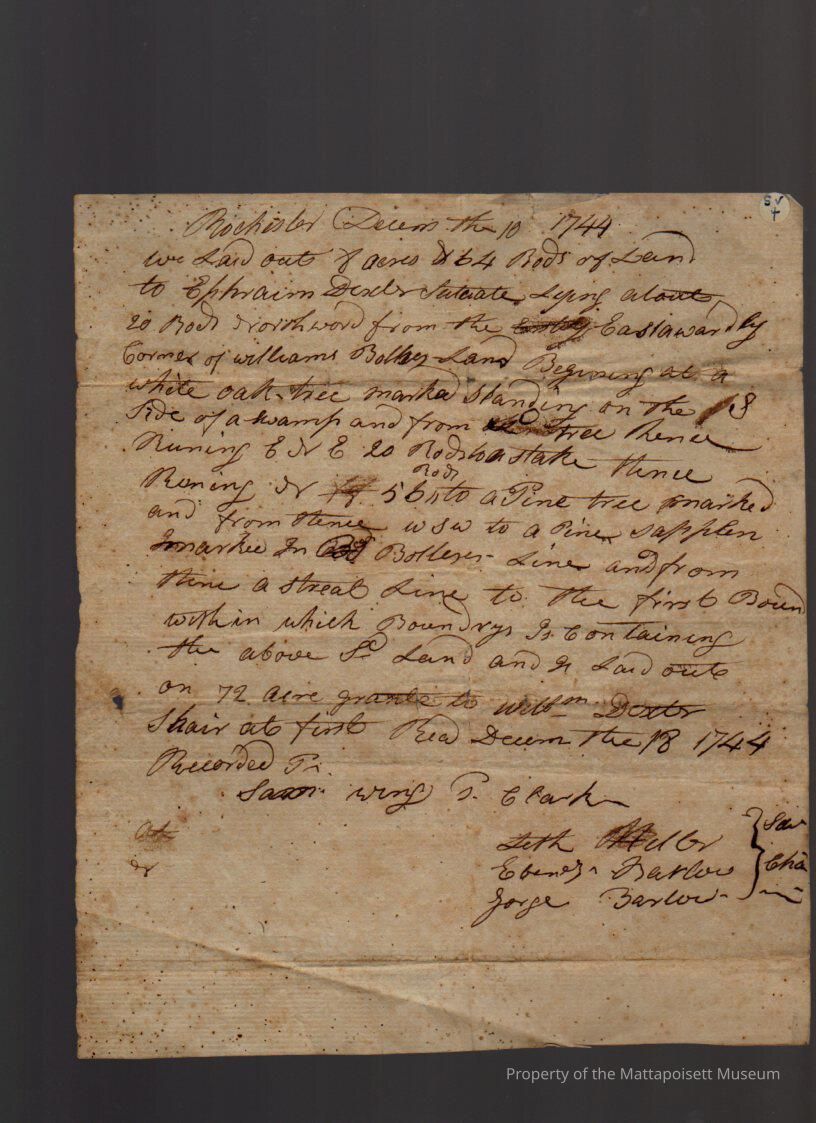 SV
+
Rochester Decem the 10 1744
we Laid out 8 acres & 64 Rods of Land
to Ephraim Dexter Sateate Lying about
20 Rods Northword from the Eastawardly
Corner of williams Bolles Land Begining at a
white oak tree marked standing on the S
side of a swamp and from tree thence
Runing E N E 20 Rods to a stake thence
Runing N 56 Rods to a Pine tree marked
and from thence w s w to a Pine sapplen
marked In Bolleses Line and from
thenc a streat Line to the first Bound
with in which Boundrys Is Containing
the above Sd Land and Is Laid out
on 72 acre grante to willm Dexter
Shair at first Recd Decem the 18 1744
Recorded Pr
Sam wing P. Clark
Seth Miller
Ebenezr Barlow
Jorge Barlow
Sur
Cha
Property of the Mattapoisett Museum